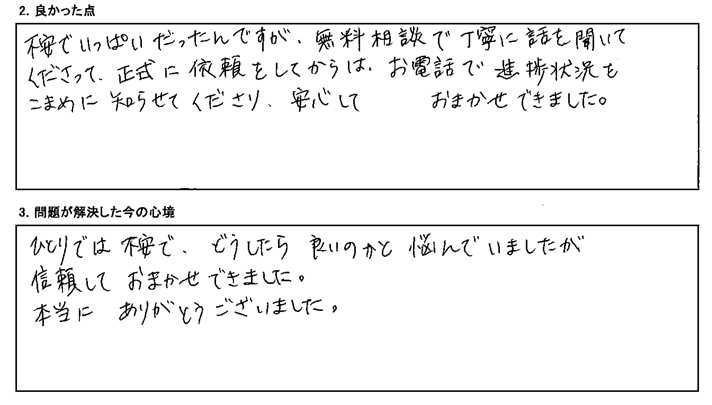 2. 良かった点
不安でいっぱいだったんですが、無料相談で丁寧に話を聞いて
くださって、正式に依頼をしてからは、お電話で進捗状況を
こまめに知らせてくださり、安心して おまかせできました。
3. 問題が解決した今の心境
ひとりでは不安で、どうしたら良いのかと悩んでいましたが
信頼しておまかせできました。
本当に ありがとうございました。